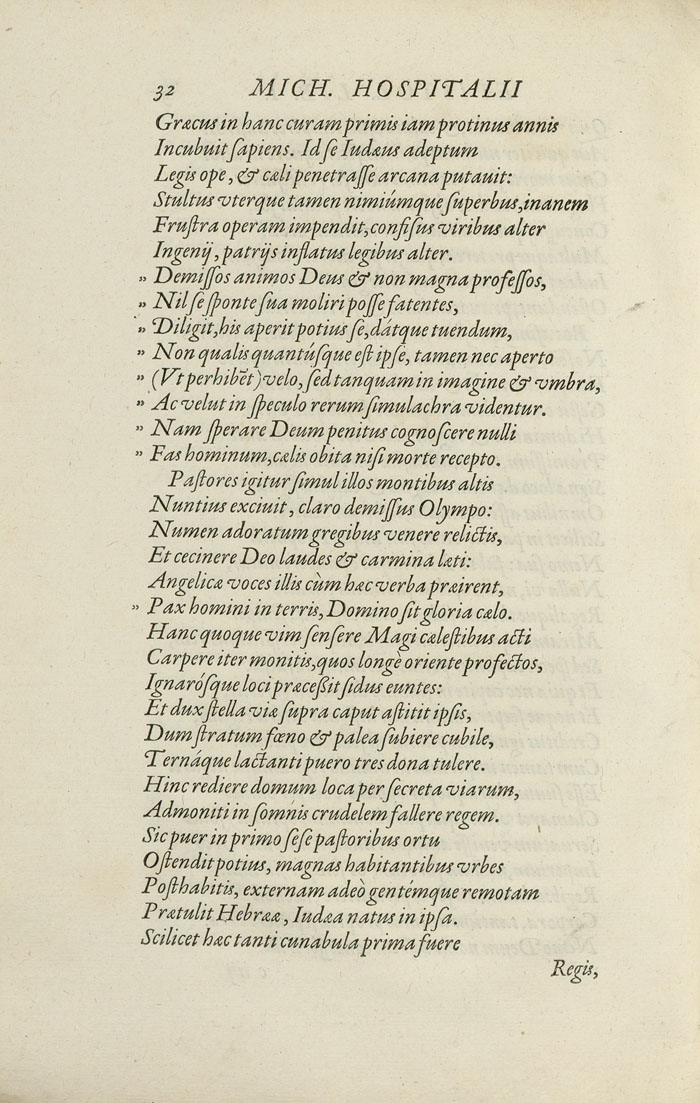 32 MICH. HOSPITALII
Græcus in hanc curam primis iam protinus annis
Incubuit ſapiens. Id ſe Iudæus adeptum
Legis ope, & cæli penetraſſe arcana putauit:
Stultus vterque tamen nimiúmque ſuperbus, inanem
Fruſtra operam impendit, confiſus viribus alter
Ingenij, patrijs inflatus legibus alter.
" Demiſſos animos Deus & non magna profeſſos,
" Nil ſe ſponte ſua moliri poſſe fatentes,
" Diligit, his aperit potius ſe, dátque tuendum,
" Non qualis quantúſque eſt ipſe, tamen nec aperto
" (Vt perhibēt) velo, ſed tanquam in imagine & vmbra,
" Ac velut in ſpeculo rerum ſimulachra videntur.
" Nam ſperare Deum penitus cognoſcere nulli
" Fas hominum, cælis obita niſi morte recepto.
Paſtores igitur ſimul illos montibus altis
Nuntius exciuit, claro demiſſus Olympo:
Numen adoratum gregibus venere relictis,
Et cecinere Deo laudes & carmina læti:
Angelicæ voces illis cùm hæc verba præirent,
" Pax homini in terris, Domino ſit gloria cælo.
Hanc quoque vim ſenſere Magi cæleſtibus acti
Carpere iter monitis, quos longè oriente profectos,
Ignaróſque loci præceßit ſidus euntes:
Et dux ſtella viæ ſupra caput aſtitit ipſis,
Dum ſtratum fœno & palea ſubiere cubile,
Ternáque lactanti puero tres dona tulere.
Hinc rediere domum loca per ſecreta viarum,
Admoniti in ſomnis crudelem fallere regem.
Sic puer in primo ſeſe paſtoribus ortu
Oſtendit potius, magnas habitantibus vrbes
Poſthabitis, externam adeò gentémque remotam
Prætulit Hebrææ, Iudæa natus in ipſa.
Scilicet hæc tanti cunabula prima fuere
Regis,